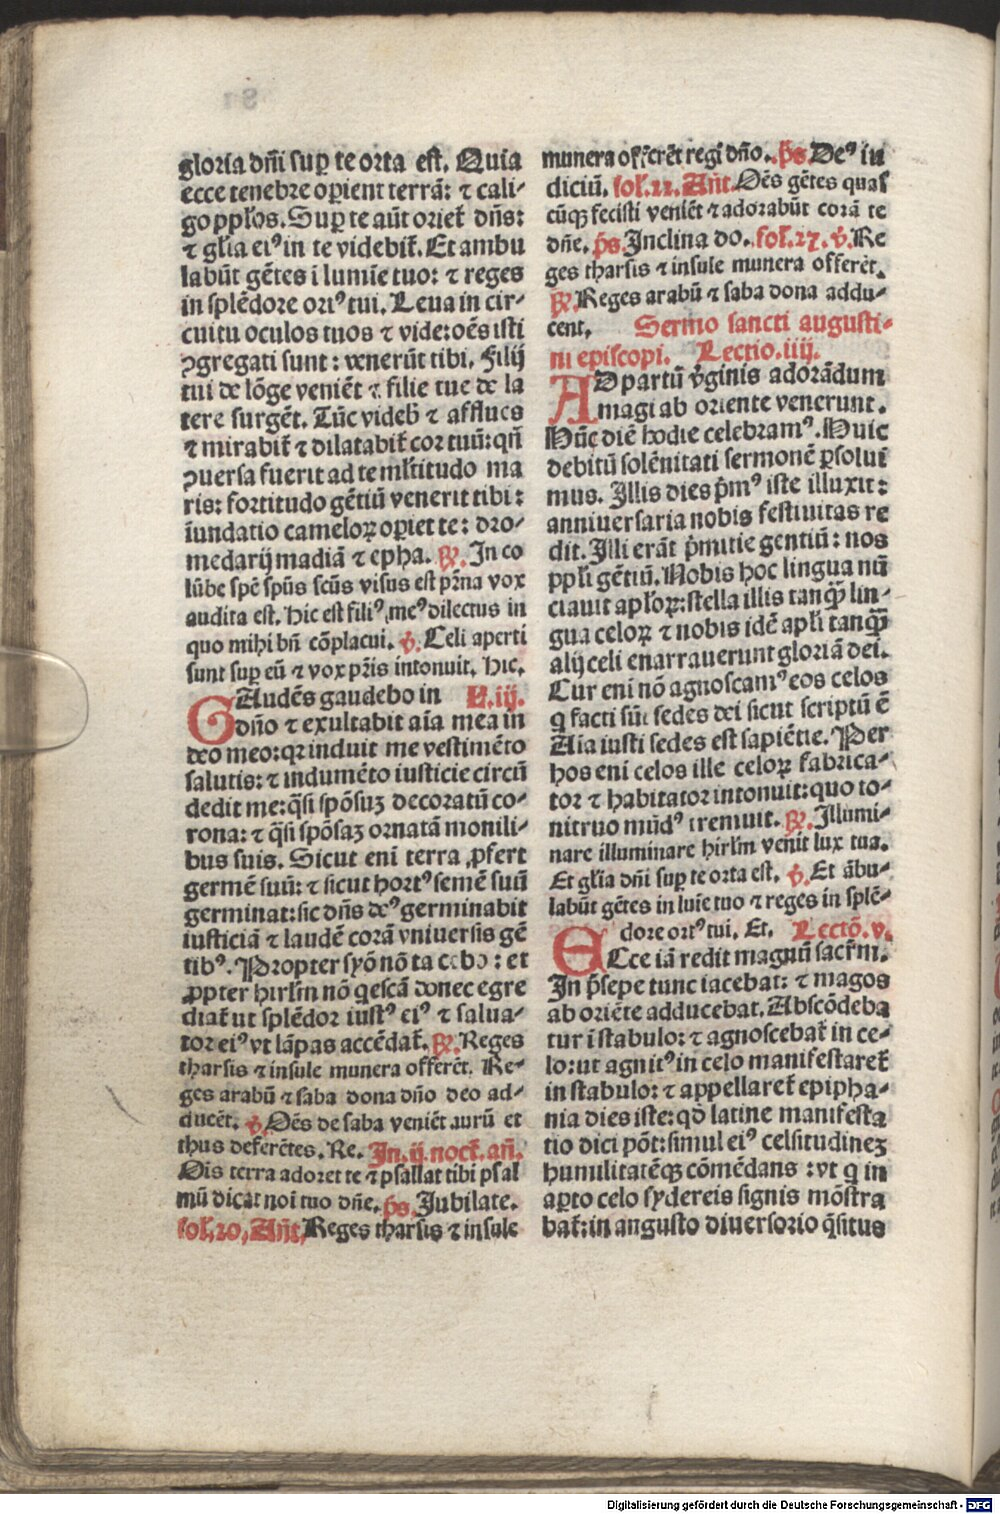 gloria dñi suꝑ te orta est. Quia
ecce tenebre oꝑient terrã: ⁊ cali-
go ppl̃os. Suꝑ te aũt orieť dñs:
⁊ gl̃ia eiꝰ in te videbiť. Et ambu
labũt gẽtes ĩ lumĩe tuo: ⁊ reges
in splẽdore orꝰ tui. Leua in cir-
cuitu oculos tuos ⁊ vide: oẽs isti
ꝯgregati sunt: venerũt tibi. Filij
tui de lõge veniẽt ⁊ filie tue de la
tere surgẽt. Tũc videb̃ ⁊ afflues
⁊ mirabiť ⁊ dilatabiť cor tuũ: qñ
ꝯuersa fuerit ad te ml̃titudo ma
ris: fortitudo gẽtiũ venerit tibi:
ĩundatio cameloꝝ oꝑiet te: dro-
medarij madiã ⁊ epha. ℟. In co
lũbe spẽ spũs scũs visus est pr̃na vox
audita est. Hic est filiꝰ meꝰ dilectus in
quo mihi bñ cõplacui. ℣. Celi aperti
sunt suꝑ eũ ⁊ vox pr̃is intonuit. Hic.
GAudẽs gaudebo in L. iij.
dño ⁊ exultabit aĩa mea in
deo meo: qꝛ induit me vestimẽto
salutis: ⁊ indumẽto iusticie circũ
dedit me: q̃si spõsuꝫ decoratũ co-
rona: ⁊ q̃si spõsaꝫ ornatã monili-
bus suis. Sicut eni terra ꝓfert
germẽ suũ: ⁊ sicut hortꝰ semẽ suũ
germinat: sic dñs deꝰ germinabit
iusticiã ⁊ laudẽ corã vniuersis gẽ
tibꝰ. Propter syõ nõ tacebo: et
ꝓpter hirl̃m nõ q̃escã donec egre
diať ut splẽdor iustꝰ eiꝰ ⁊ salua-
tor eiꝰ vt lãpas accẽdať. ℟. Reges
tharsis ⁊ insule munera offerẽt. Re-
ges arabũ ⁊ saba dona dño deo ad-
ducẽt. ℣. Oẽs de saba veniẽt aurũ et
thus deferẽtes. Re. In. ij. nocť. añ.
Ois terra adoret te ⁊ psallat tibi psal
mũ dicat noi tuo dñe. p̃s. Jubilate.
fol. 20. Añt. Reges tharsis ⁊ insule
munera offerẽt regi dño. p̃s. Deꝰ iu
diciũ. fol. 22. Añt. Oẽs gẽtes quas
cũqꝫ fecisti veniẽt ⁊ adorabũt corã te
dñe. p̃s. Inclina do. fol. 27. ℣. Re
ges tharsis ⁊ insule munera offerẽt.
℟. Reges arabũ ⁊ saba dona addu-
cent. Sermo sancti augusti-
ni episcopi. Lectio. iiij.
AD partũ v̓ginis adorãdum
magi ab oriente venerunt.
Hũc diẽ hodie celebramꝰ. Huic
debitũ solẽnitati sermonẽ ꝑsolui
mus. Illis dies p̃mꝰ iste illuxit:
anniuersaria nobis festiuitas re
dit. Illi erãt p̃mitie gentiũ: nos
ppl̃i gẽtiũ. Nobis hoc lingua nũ
ciauit apl̃oꝝ: stella illis tanq̃ꝫ lin-
gua celoꝝ ⁊ nobis idẽ apl̃i tanq̃ꝫ
alij celi enarrauerunt gloriã dei.
Cur eni nõ agnoscamꝰ eos celos
q̃ facti sũt sedes dei sicut scriptũ ẽ
Aĩa iusti sedes est sapiẽtie. Per
hos eni celos ille celoꝝ fabrica-
tor ⁊ habitator intonuit: quo to-
nitruo mũdꝰ tremuit. ℟. Illumi-
nare illuminare hirl̃m venit lux tua.
Et gl̃ia dñi suꝑ te orta est. ℣. Et ãbu-
labũt gẽtes in luĩe tuo ⁊ reges in splẽ-
dore ortꝰ tui. Et. Lectõ. v.
ECce iã redit magnũ sacr̃m.
In p̃sepe tunc iacebat: ⁊ magos
ab oriẽte adducebat. Abscõdeba
tur ĩ stabulo: ⁊ agnoscebať in ce-
lo: ut agnitꝰ in celo manifestareť
in stabulo: ⁊ appellareť epipha-
nia dies iste: qđ latine manifesta
tio dici põt: simul eiꝰ celsitudineꝫ
humilitatẽqꝫ cõmẽdans: vt q̃ in
aꝑto celo sydereis signis mõstra
bať: in angusto diuersorio q̃situs
Digitalisierung gefördert durch die Deutsche Forschungsgemeinschaft - DFG